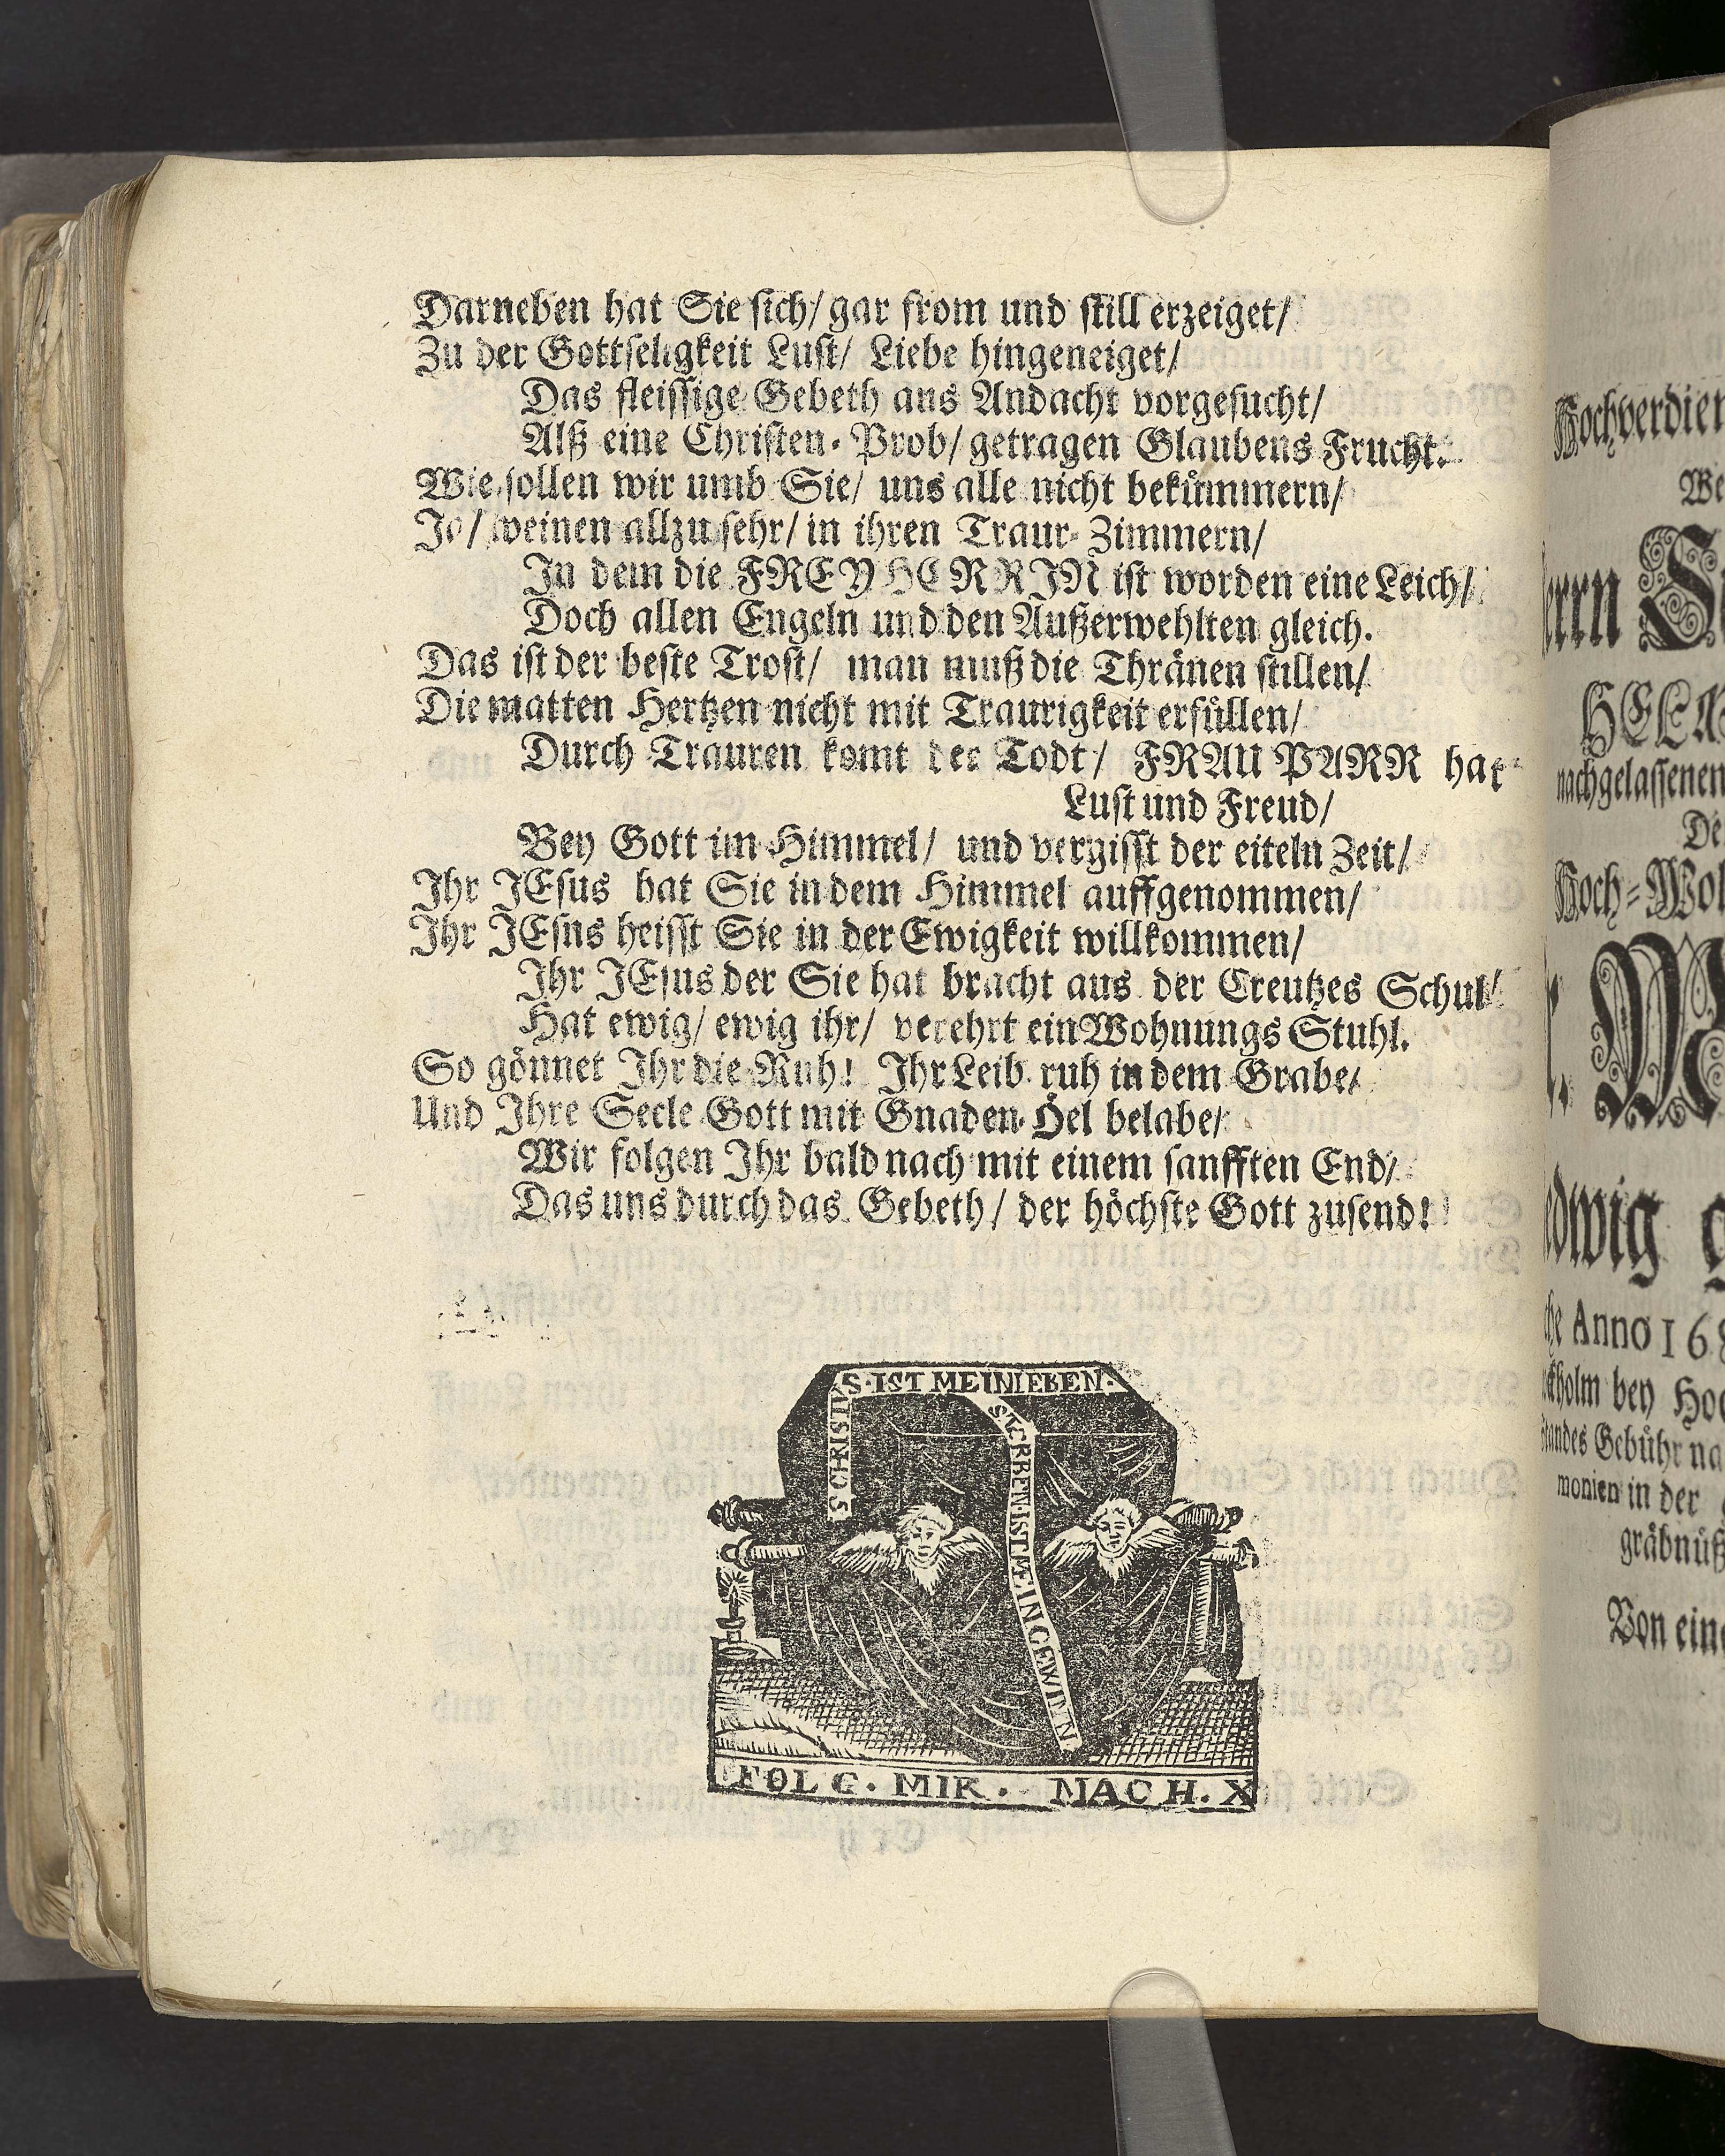 Darneben hat Sie sich/ gar from und still erzeiget/
Zu der Gottseligkeit Lust/ Liebe hingeneiget/
Das fleissige Gebeth aus Andacht vorgesucht/
Alß eine Christen-Prob/ getragen Glaubens Frucht.
Wie sollen wir umb Sie/ uns alle nicht bekümmern/
Ja/ weinen allzu sehr/ in ihren Traur-Zimmern/
In dem die FREYHERRIN ist worden eine Leich/
Doch allen Engeln und den Außerwehlten gleich.
Das ist der beste Trost/ man muß die Thränen stillen/
Die matten Hertzen nicht mit Traurigkeit erfüllen/
Durch Trauren komt der Todt/ FRAU PARR hat
Lust und Freud/
Bey Gott im Himmel/ und vergisst der eiteln Zeit/
Ihr JEsus hat Sie in dem Himmel auffgenommen/
Ihr JEsus heisst Sie in der Ewigkeit willkommen/
Ihr JEsus der Sie hat bracht aus der Creutzes Schul/
Hat ewig/ ewig ihr/ verehrt ein Wohnungs Stuhl.
So gönnet Ihr die Ruh! Ihr Leib ruh in dem Grabe/
Und Ihre Seele Gott mit Gnaden-Öel belabe/
Wir folgen Ihr bald nach mit einem sanfften End/
Das uns durch das Gebeth/ der höchste Gott zusend!
S CHRISTUS IST MEIN LEBEN.
STERBEN IST MEIN GEWINN
FOLG. MIR. NACH. X
Hochverdien
We
HELM
nachgelassenen
De
Hoch-Wol
edwig g
che Anno 168
ockholm bey Hoc
Standes Gebühr na
monien in der
gräbnüß
Von eine